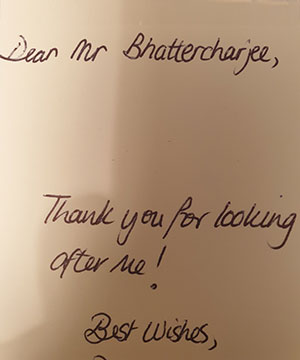 Dear Mr Bhattercharjee,
Thank you for looking
after me!
Best Wishes,